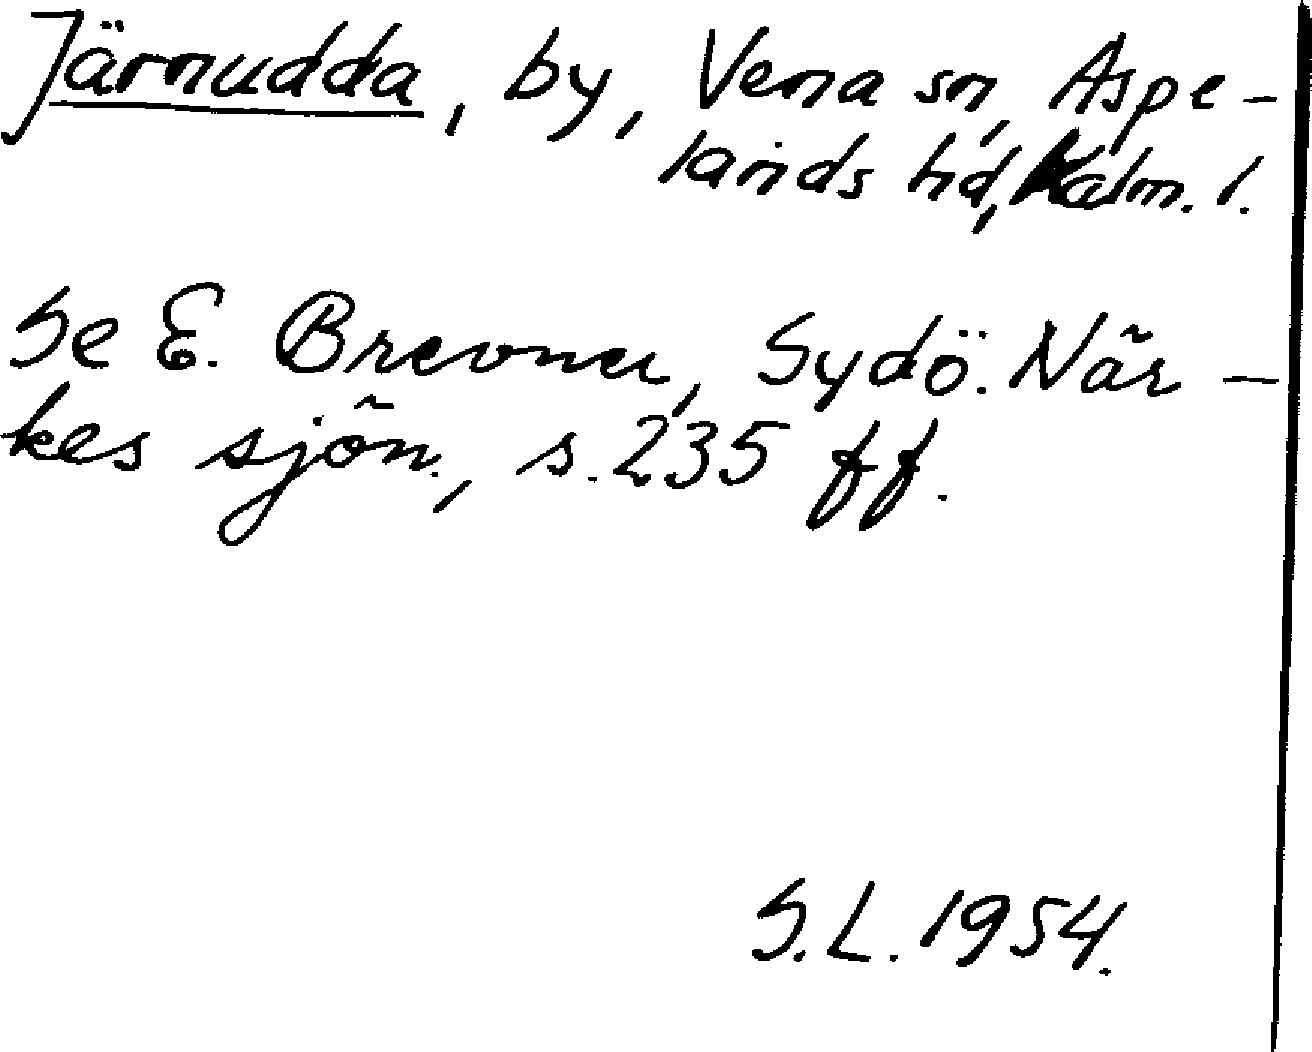 Järnudda, by, Vena sn, Aspe-
lands hd, Kalm. l.
Se E. Brevner, Sydö. När-
kes sjön., s. 235 ff.
S.L. 1954.